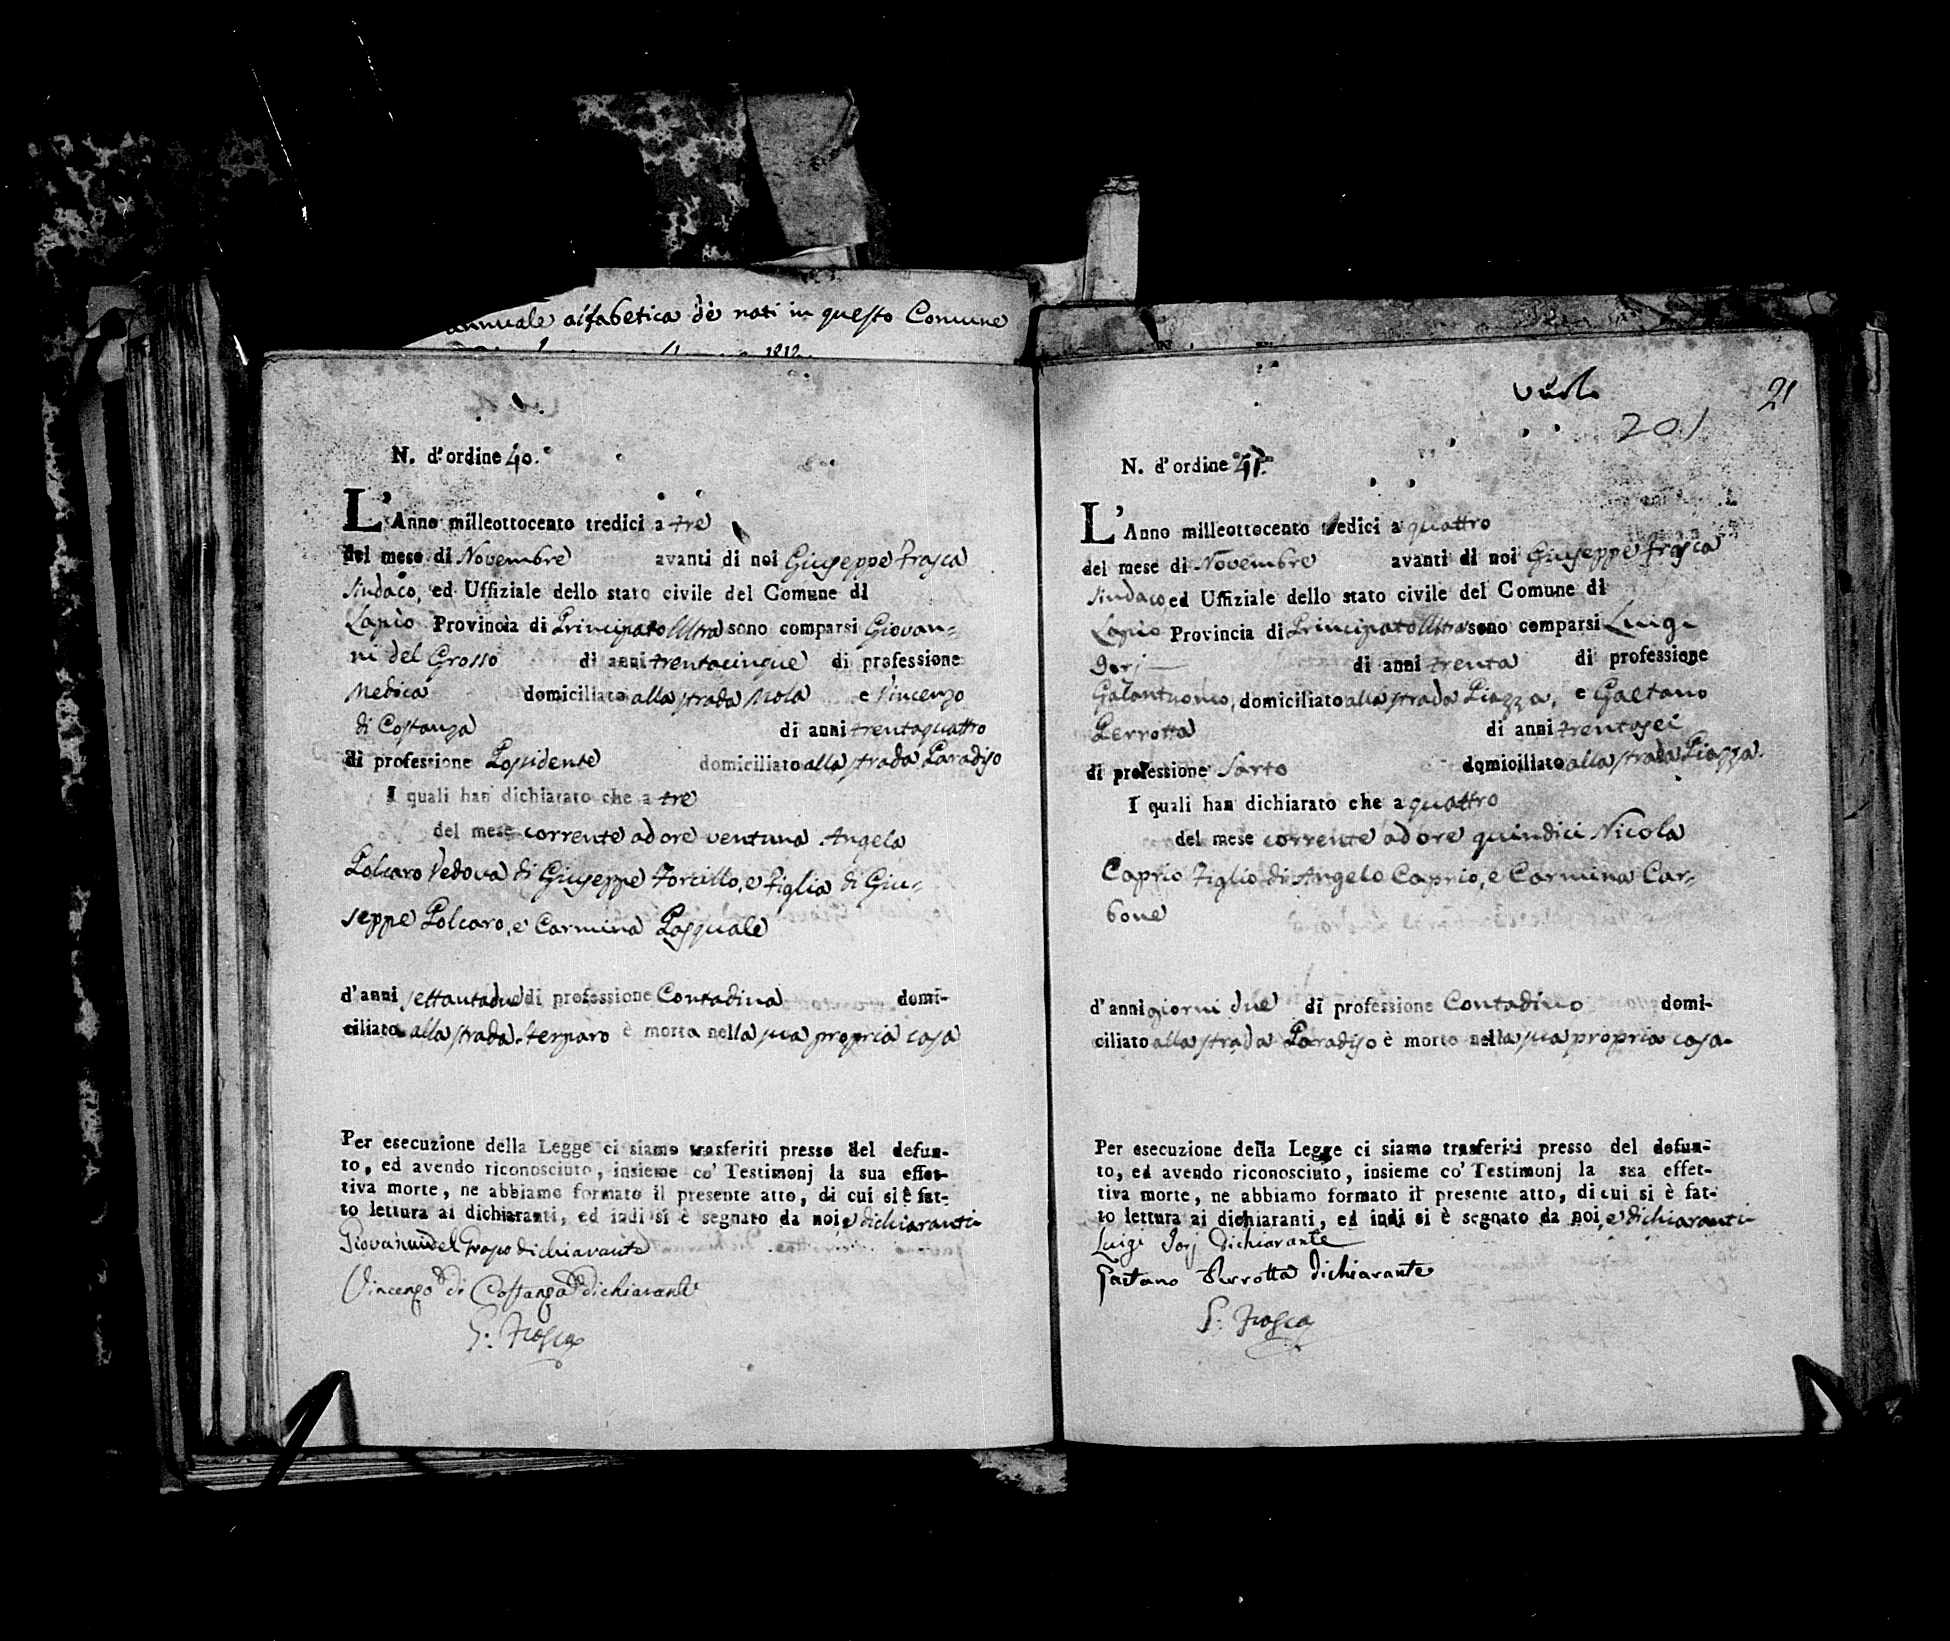 annuale alfabetica de nati in questo Comune
1812.
N. d'ordine 40.
L'Anno milleottocento tredici a tre
del mese di Novembre avanti di noi Giuseppe Frasca
Sindaco, ed Uffiziale dello stato civile del Comune di
Lapio Provincia di Principato Ultra sono comparsi Giovan-
ni del Grosso di anni trentacinque di professione
Medico domiciliato alla strada Mola e Vincenzo
di Costanza di anni trentaquattro
di professione Possidente domiciliato alla strada Paradiso
I quali han dichiarato che a tre
del mese corrente ad ore ventuna Angela
Polcaro Vedova di Giuseppe Forcillo, e Figlia di Giu-
seppe Polcaro, e Carmina Pasquale
d'anni settantadue di professione Contadina domi-
ciliata alla strada Sterparo è morta nella sua propria casa
Per esecuzione della Legge ci siamo trasferiti presso del defun-
to, ed avendo riconosciuto, insieme co' Testimonj la sua effet-
tiva morte, ne abbiamo formato il presente atto, di cui si è fat-
to lettura ai dichiaranti, ed indi si è segnato da noi, e dichiaranti
Giovanni del Grosso dichiarante
Vincenzo di Costanza dichiarante
G. Frasca
21
201
N. d'ordine 41.
L'Anno milleottocento tredici a quattro
del mese di Novembre avanti di noi Giuseppe Frasca
Sindaco ed Uffiziale dello stato civile del Comune di
Lapio Provincia di Principato Ultra sono comparsi Luigi
Jorj di anni trenta di professione
Galantuomo, domiciliato alla strada Piazza, e Gaetano
Perrotta di anni trentasei
di professione Sarto domiciliato alla strada Piazza.
I quali han dichiarato che a quattro
del mese corrente ad ore quindici Nicola
Caprio Figlio di Angelo Caprio, e Carmina Car-
bone
d'anni giorni due di professione Contadino domi-
ciliato alla strada Paradiso è morto nella sua propria casa
Per esecuzione della Legge ci siamo trasferiti presso del defun-
to, ed avendo riconosciuto, insieme co' Testimonj la sua effet-
tiva morte, ne abbiamo formato il presente atto, di cui si è fat-
to lettura ai dichiaranti, ed indi si è segnato da noi, e dichiaranti
Luigi Jorj dichiarante
Gaetano Perrotta dichiarante
G. Frasca